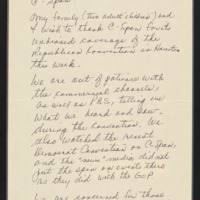 C-Span:
My family (two adult children) and
I wish to thank C-Span for its
unbiased coverage of the
Republican Convention in Houston
this week.
We are out of patience with
the commercial channels,
as well as PBS, telling us
what we heard and saw
during the convention. We
also watched the recent
Democrat Convention on C-Span,
and the "news" media did not
put the spin on events there
as they did with the GOP.
We are concerned for those